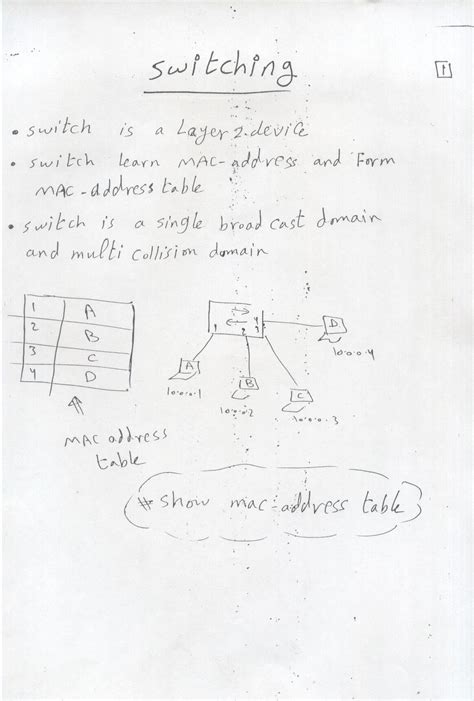 switching
1
• switch is a Layer 2.device
• switch learn MAC-address and Form
MAC-address table
• switch is a single broad cast domain
and multi collision domain
1 A
2 B
3 C
4 D
MAC address
table
1 2 3 4
A
10.0.0.1
B
10.0.0.2
C
10.0.0.3
D
10.0.0.4
# show mac-address table